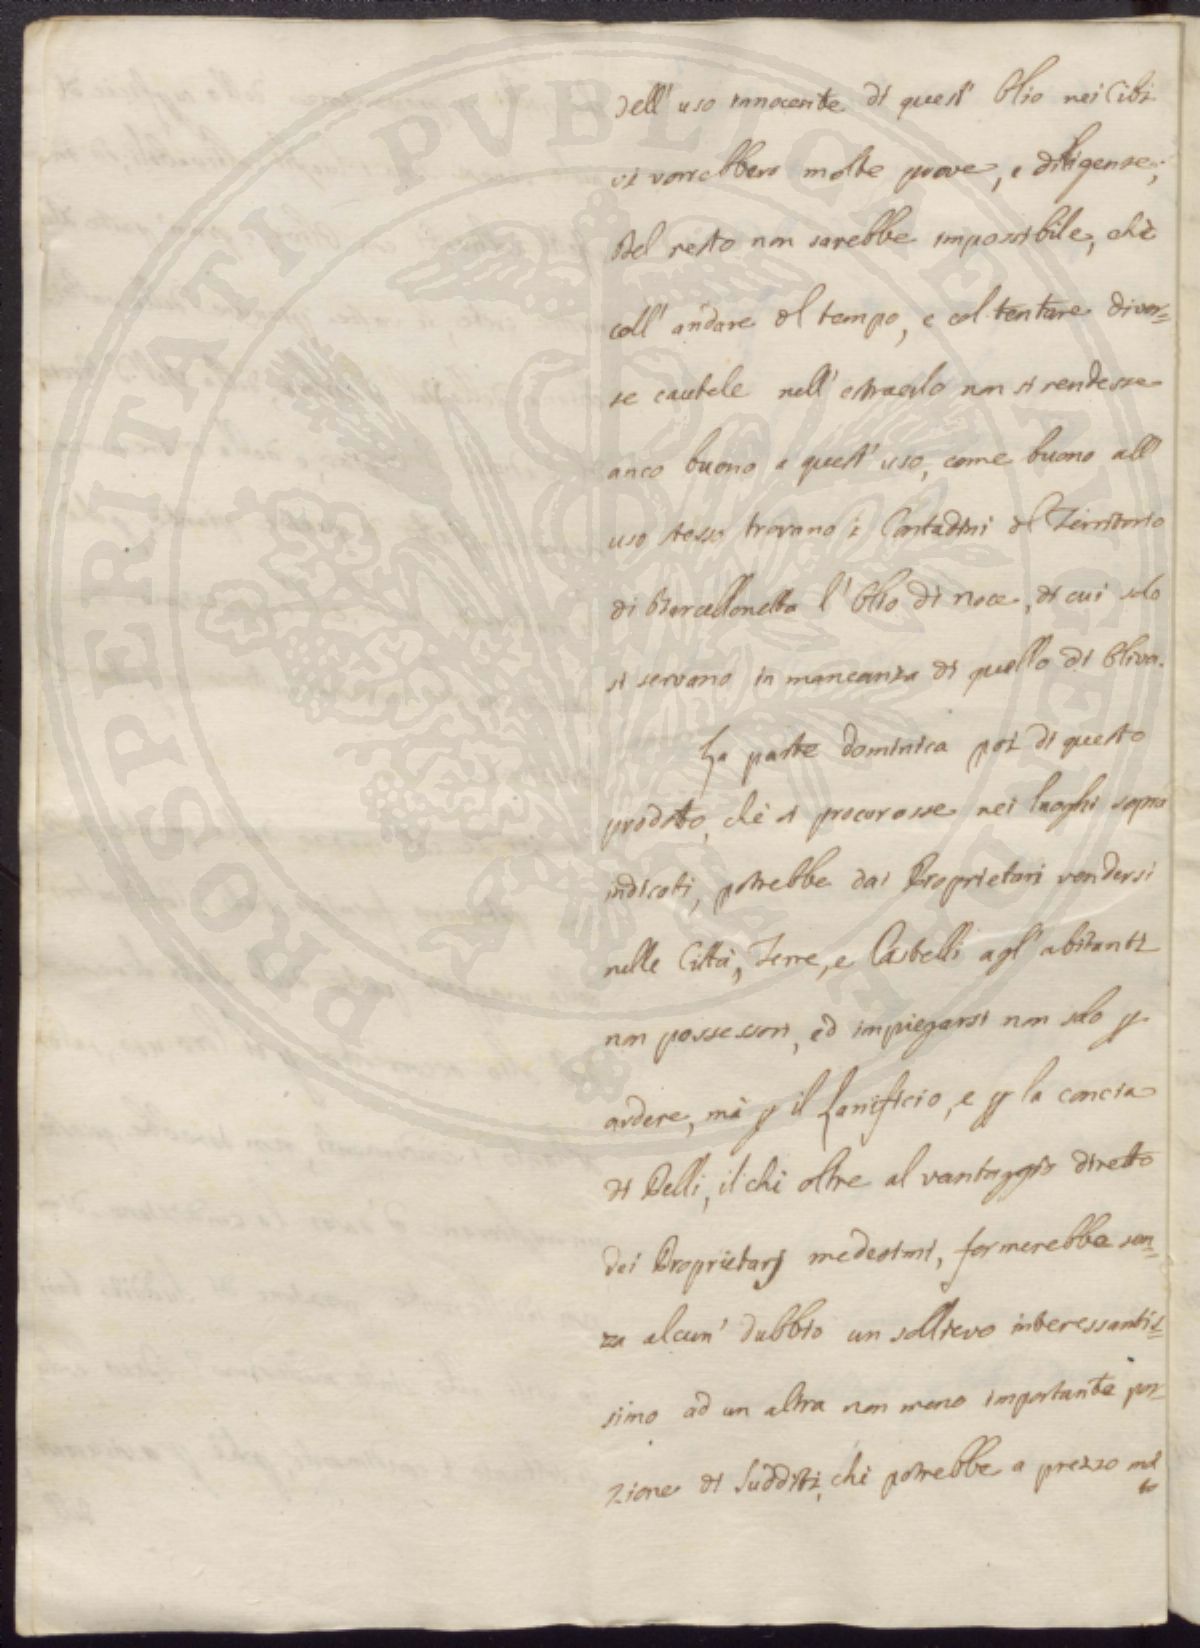 dell' uso innocente di quest' Olio nei Cibi
vi vorrebbero molte prove, e diligenze;
Del resto non sarebbe impossibile, chè
coll' andare del tempo, e col tentare diver=
se cautele nell' estraerlo non si rendesse
anco buono a quest' uso, come buono all'
uso stesso trovano i Contadini del Territorio
di Barcellonetta l' Olio di noce, di cui solo
si servano in mancanza di quello di Oliva.
La parte dominica poi di questo
prodotto, chè si procurasse nei luoghi sopra
indicati, potrebbe dai Proprietari vendersi
nelle Città, Terre, e Castelli agl' abitanti
non possessori, ed impiegarsi non solo p
ardere, mà p il Lanificio, e p la concia
di Pelli, il chè oltre al vantaggio diretto
dei Proprietarj medesimi, formerebbe sen=
za alcun' dubbio un sollievo interessantis=
simo ad un altra non meno importante por=
zione di Sudditi, chè potrebbe a prezzo mol
to
PROSPERITATI PVBLICAE AVGENDAE